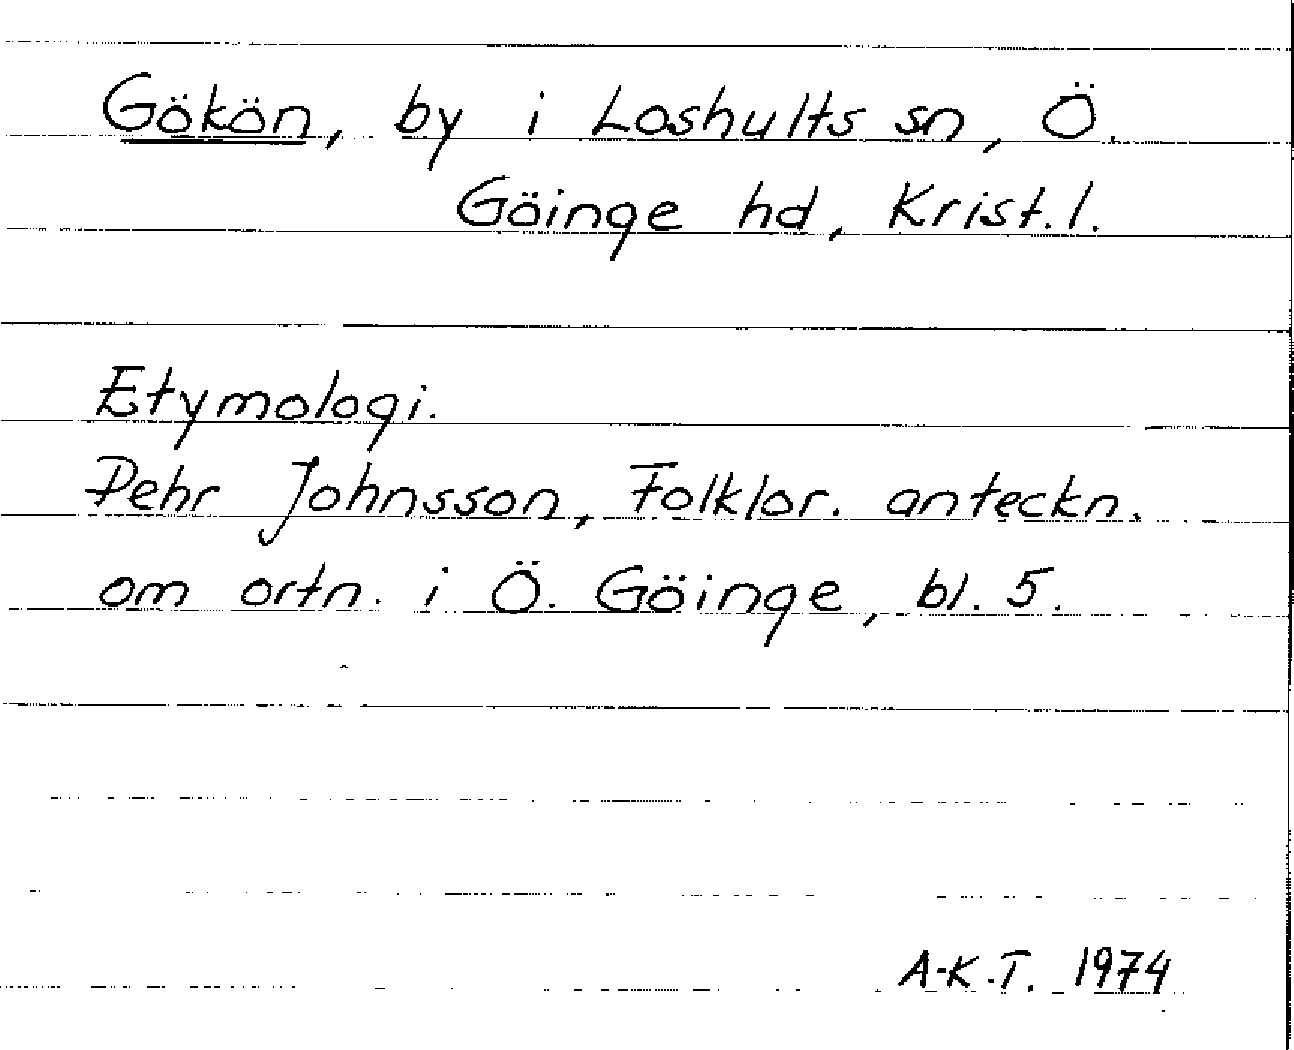 Gökön, by i Loshults sn, Ö.
Göinge hd, Krist. l.
Etymologi.
Pehr Johnsson, Folklor. anteckn.
om ortn. i Ö. Göinge, bl. 5.
A-K.T. 1974